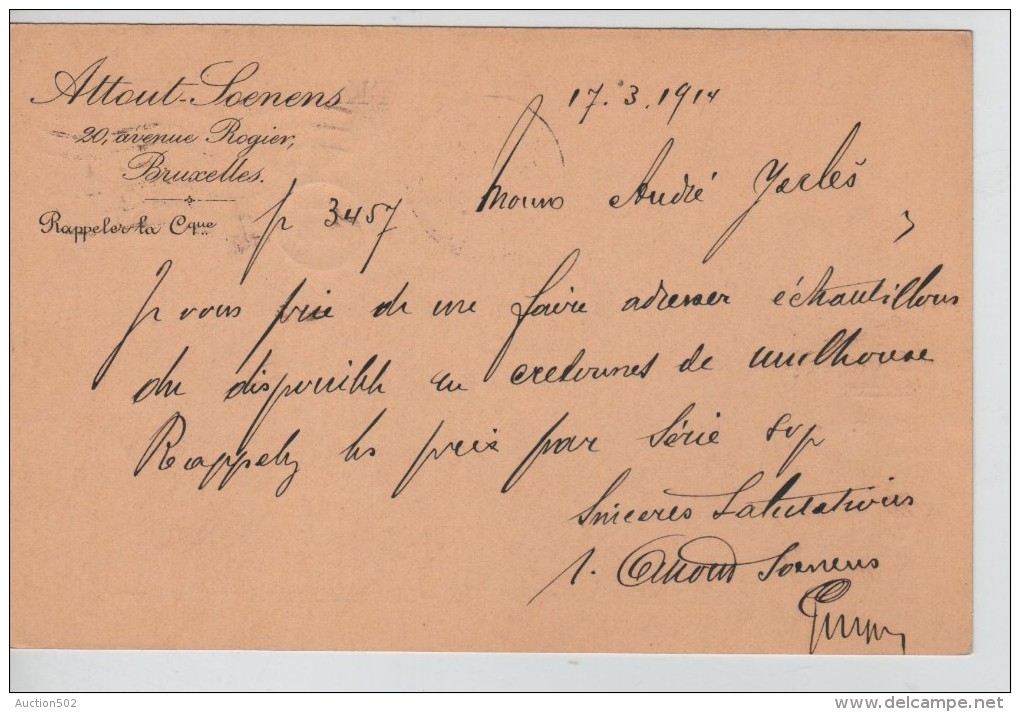 Attout-Soenens
20, avenue Rogier,
Bruxelles.
Rappeler la Cque
17.3.1914
p 3457
André
Je vous prie de me faire adresser échantillons
du disponible en cretonnes de mulhouse
Rappelez les prix par Série svp
Sincères Salutations
Attout Soenens
Auction502
delcampe.net